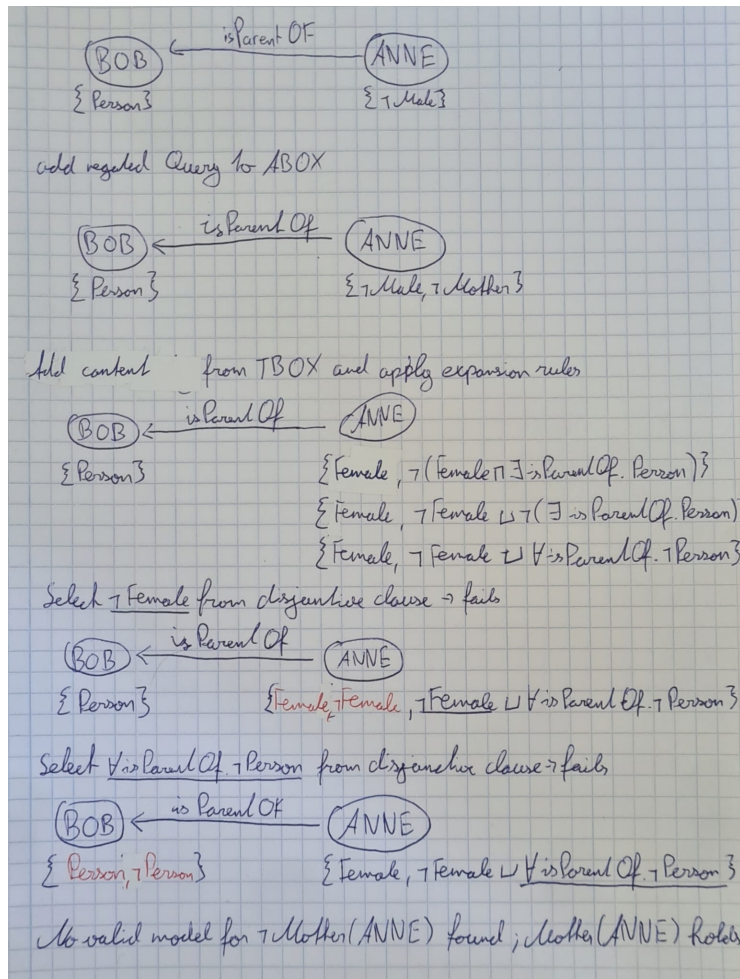 isParent OF
BOB ANNE
{Person} {¬Male}
add negated Query to ABOX
isParent Of
BOB ANNE
{Person} {¬Male, ¬Mother}
Add content from TBOX and apply expansion rules
isParent Of
BOB ANNE
{Person} {Female, ¬(Female ⊓ ∃ isParentOf. Person)}
{Female, ¬Female ⊔ ¬(∃ isParentOf. Person)
{Female, ¬Female ⊔ ∀isParentOf. ¬Person}
Select ¬Female from disjunctive clause → fails
is Parent Of
BOB ANNE
{Person} {Female, ¬Female, ¬Female ⊔ ∀isParentOf. ¬Person}
Select ∀isParentOf. ¬Person from disjunctive clause → fails
is Parent OF
BOB ANNE
{Person, ¬Person} {Female, ¬Female ⊔ ∀isParentOf. ¬Person}
No valid model for ¬Mother(ANNE) found; Mother(ANNE) holds